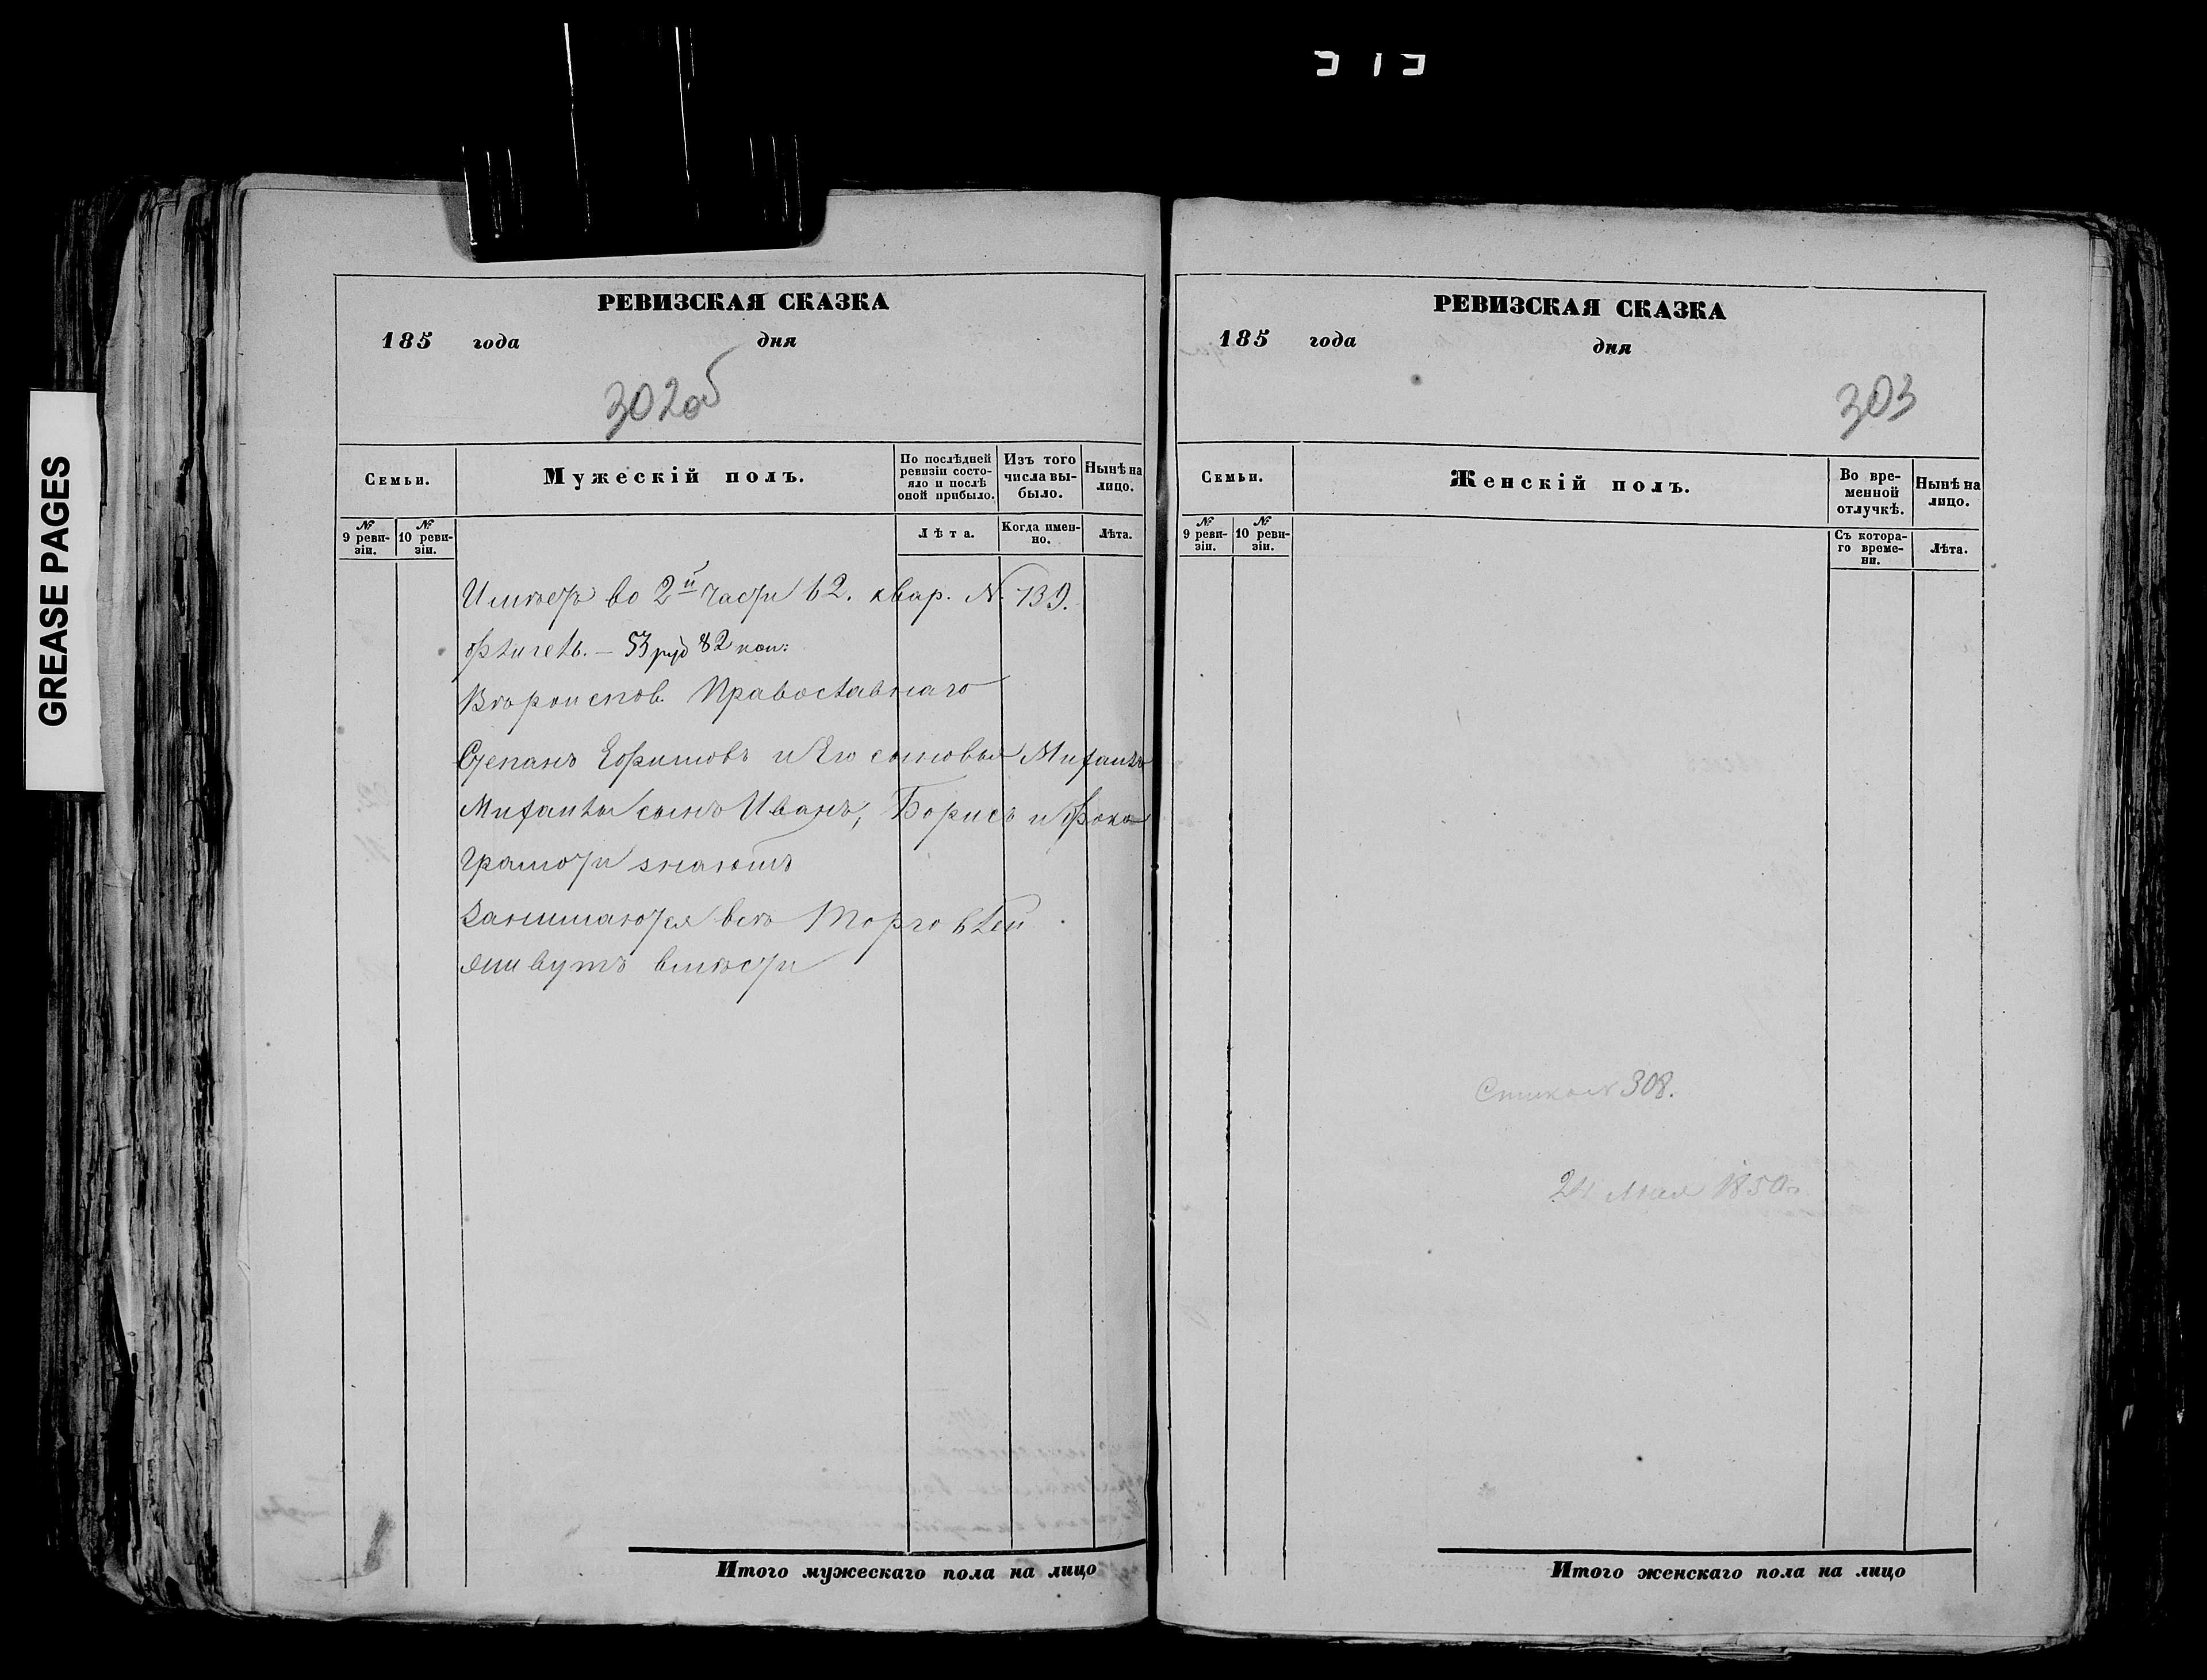 GREASE PAGES
РЕВИЗСКАЯ СКАЗКА
185 года дня
302об
Семьи.
Мужескій полъ.
По послѣдней ревизіи состояло и послѣ оной прибыло.
Изъ того числа выбыло.
Нынѣ на лицо.
№ 9 ревизіи.
№ 10 ревизіи.
Лѣта.
Когда именно.
Лѣта.
Имѣетъ во 2й части 62. квар. N. 139.
53 руб 82 коп:
Вѣроисповѣ. Православнаго
Степанъ Ефимовъ и Его сыновья Михаилъ
Михаила сынъ Иванъ, Борисъ и Фока
Грамоти знаютъ
Занимаются всѣ Торговлей
живутъ вмѣсти
Итого мужескаго пола на лицо
РЕВИЗСКАЯ СКАЗКА
185 года дня
303
Семьи.
Женскій полъ.
Во временной отлучкѣ.
Нынѣ на лицо.
№ 9 ревизіи.
№ 10 ревизіи.
Съ котораго времени.
Лѣта.
308.
24 Мая 1850
Итого женскаго пола на лицо